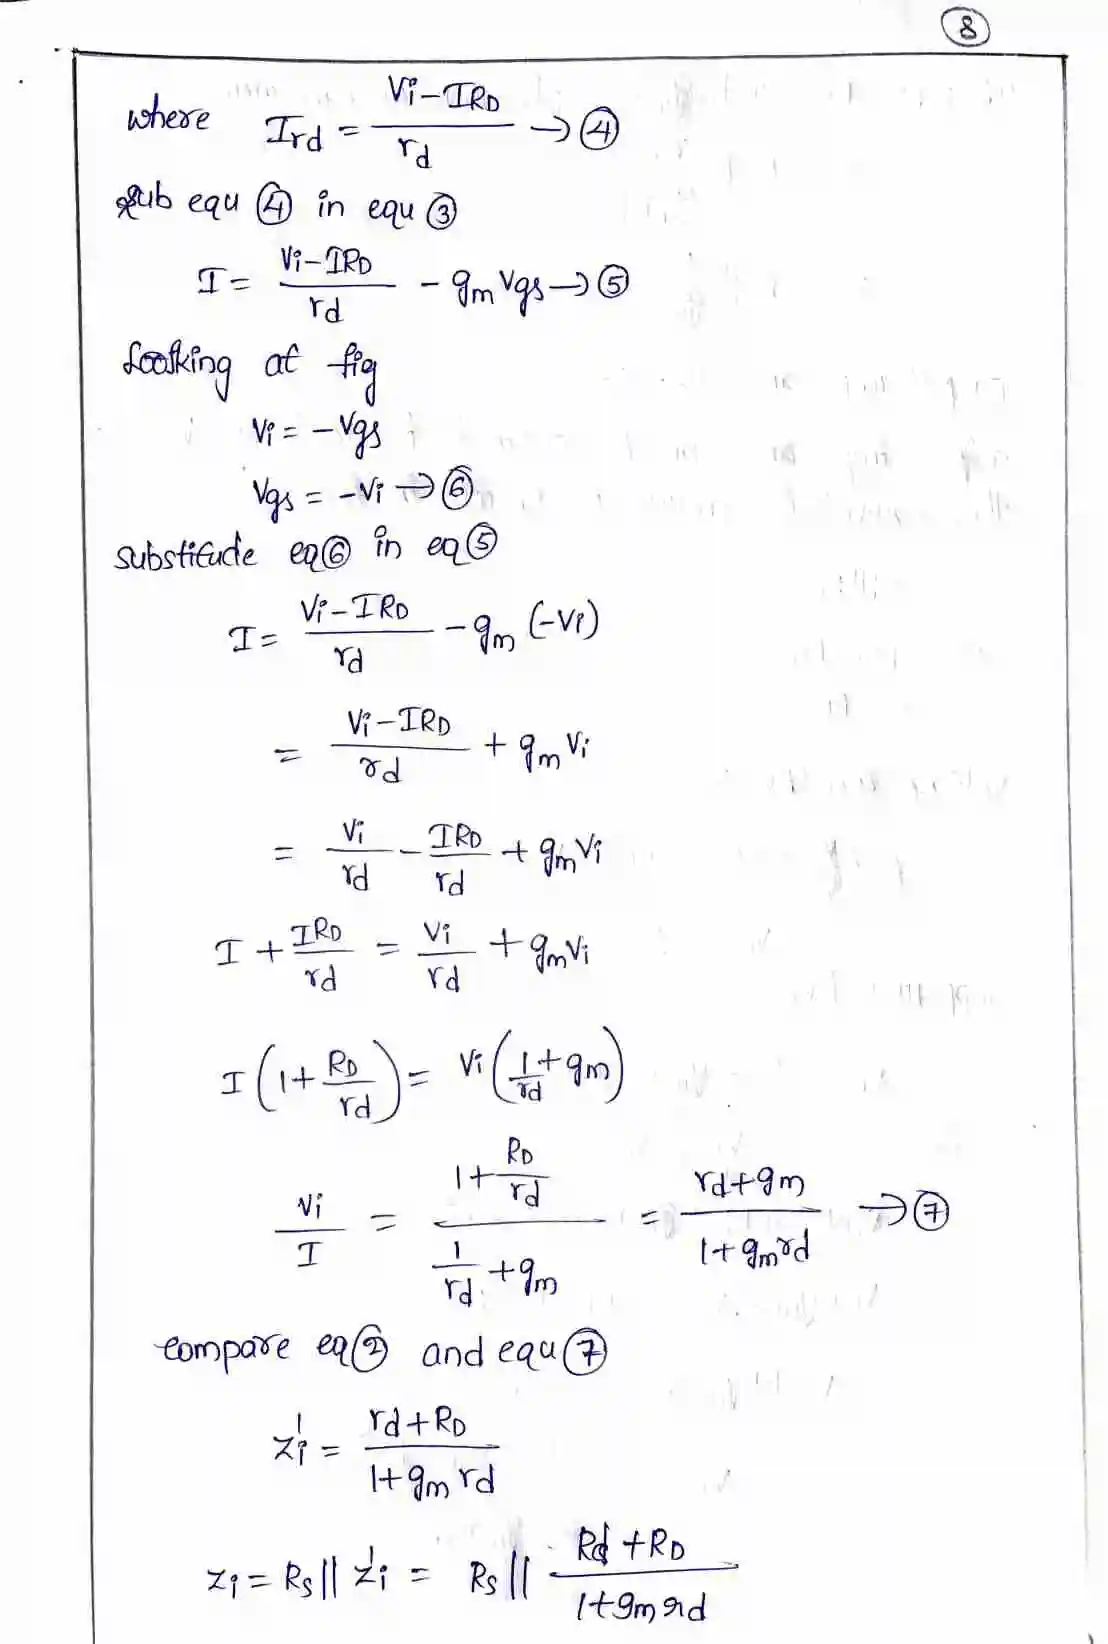 8
where Ird = (Vi-IRD)/rd → ④
sub equ ④ in equ ③
I = (Vi-IRD)/rd - gm Vgs → ⑤
Looking at fig
Vi = -Vgs
Vgs = -Vi → ⑥
substitude eq⑥ in eq⑤
I = (Vi-IRD)/rd - gm (-Vi)
= (Vi-IRD)/rd + gm Vi
= Vi/rd - IRD/rd + gmVi
I + IRD/rd = Vi/rd + gmVi
I (1+ RD/rd) = Vi (1/rd + gm)
Vi/I = (1+ RD/rd)/(1/rd + gm) = (rd+gm)/(1+gmrd) → ⑦
compare eq② and equ⑦
zi' = (rd+RD)/(1+gm rd)
zi = Rs || zi' = Rs || (Rd+RD)/(1+gmrd)